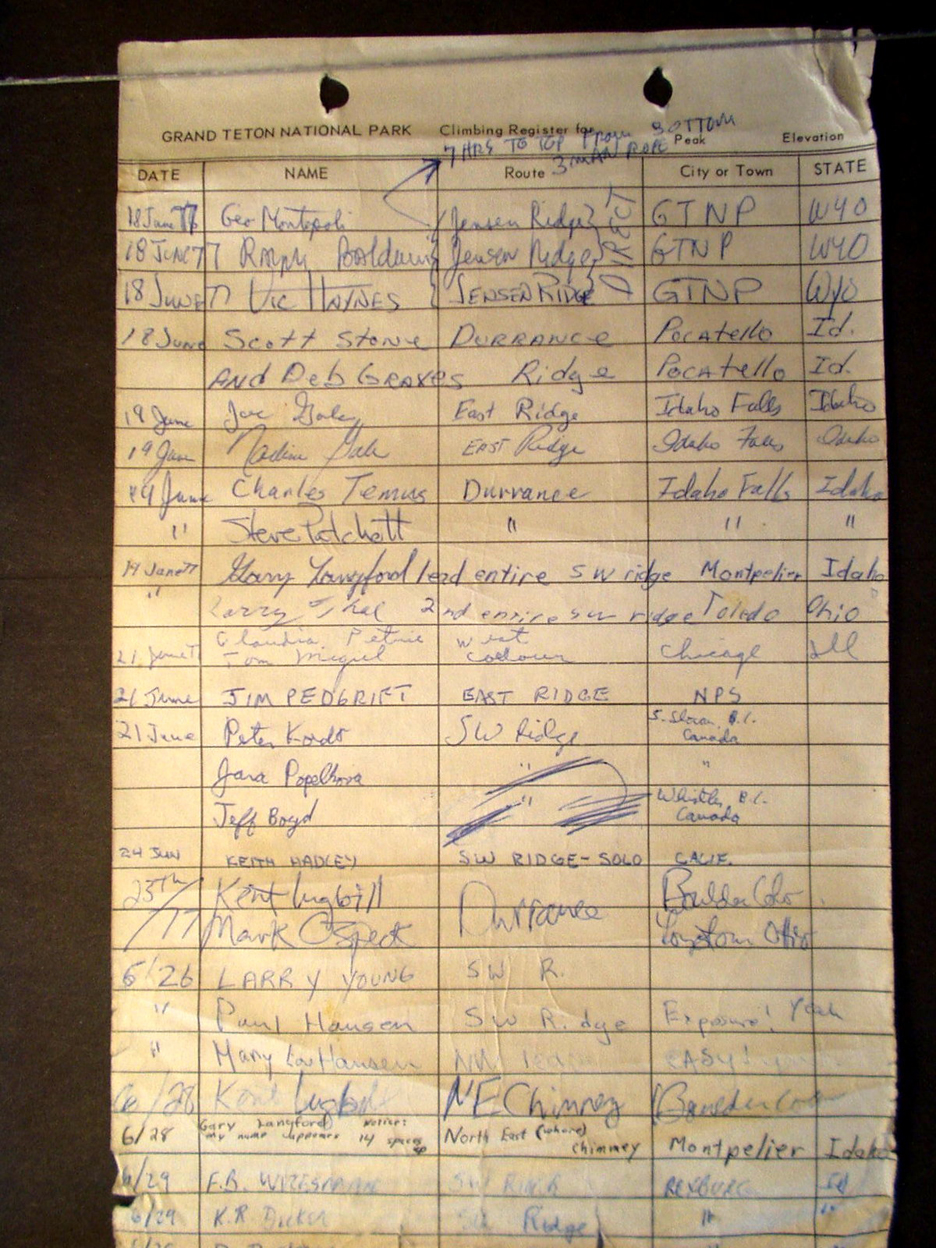 GRAND TETON NATIONAL PARK Climbing Register for Peak Elevation
7 HRS TO TOP From BOTTOM
3 MAN ROPE
DATE NAME Route City or Town STATE
18 June 77 Geo Montopoli Jensen Ridge GTNP WYO
DIRECT
18 JUNE 77 Ralph Baldwin Jensen Ridge GTNP WYO
18 JUNE 77 Vic HAYNES JENSEN RIDGE GTNP WYO
18 June Scott Stone DURRANCE POCATELLO Id.
AND Deb GRAVES Ridge POCAtello Id.
19 June East Ridge Idaho Falls Idaho
19 June EAST Ridge Idaho Falls Idaho
19 June Charles Temus Durrance Idaho Falls Idaho
" Steve Patchett " " "
19 June 77 Gary Langford lead entire SW ridge Montpelier Idaho
" Larry 2nd entire SW ridge Toledo Ohio
Claudia Petrie West
21 June 77 Tom Miguel Chicago Ill
21 June JIM PEDGRIFT EAST RIDGE NPS
21 June Peter Kordt SW Ridge S. Slocan, B.C. Canada
Jana Popelkova " "
Jeff Boyd " Whistler, B.C. Canada
24 JUN KEITH HADLEY SW RIDGE-SOLO CALIF.
25th/77 Kent Lugbill Durrance Boulder Colo
Mark C Speck Ohio
6/26 LARRY YOUNG SW R.
" Paul Hansen SW Ridge Exposure! Yeah
" Mary Lou Hansen EASY!
6/28 Kent Lugbill NE Chimney Boulder Colo
6/28 Gary Langford Notice: my name appears 14 spaces up North East (where) chimney Montpelier Idaho
6/29 F.B. REXBURG Id
6/29 K.R. SW Ridge " "